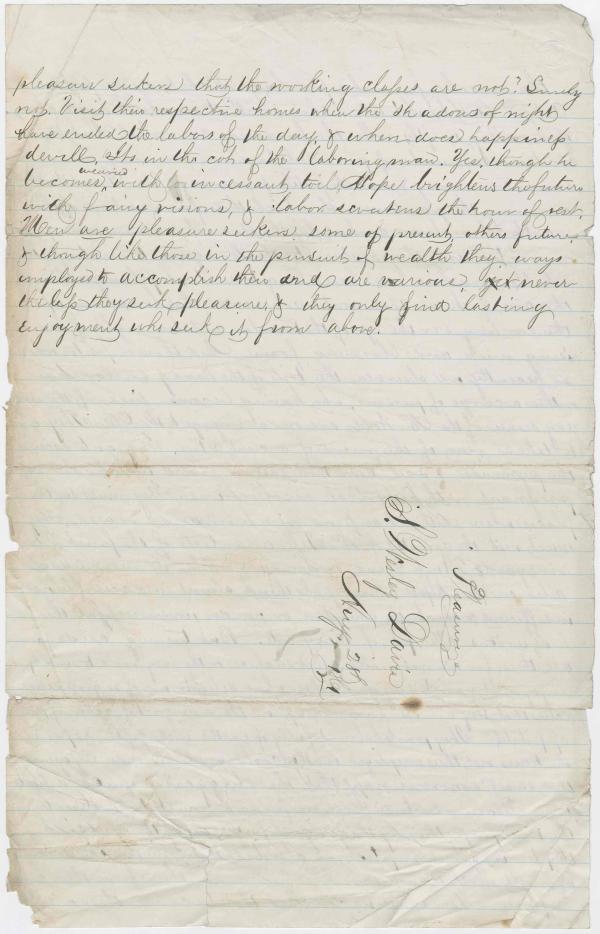 pleasure seekers that the working classes are not? Surely
not. Visit their respective homes when the shadows of night
have ended the labors of the day, & where does happiness
dwell. Its in the cot of the laboring man. Yes, though he
becomes wearied with incessant toil, Hope brightens the future
with fairy visions, & labor sweetens the hour of rest.
Men are pleasure seekers some of present, others future,
& though like those in the pursuit of wealth they ways
employed to accomplish their end are various, yet never
theless they seek pleasure, & they only find lasting
enjoyment who seek it from above.
Pleasure
S. Wesley Davis
Aug. 28